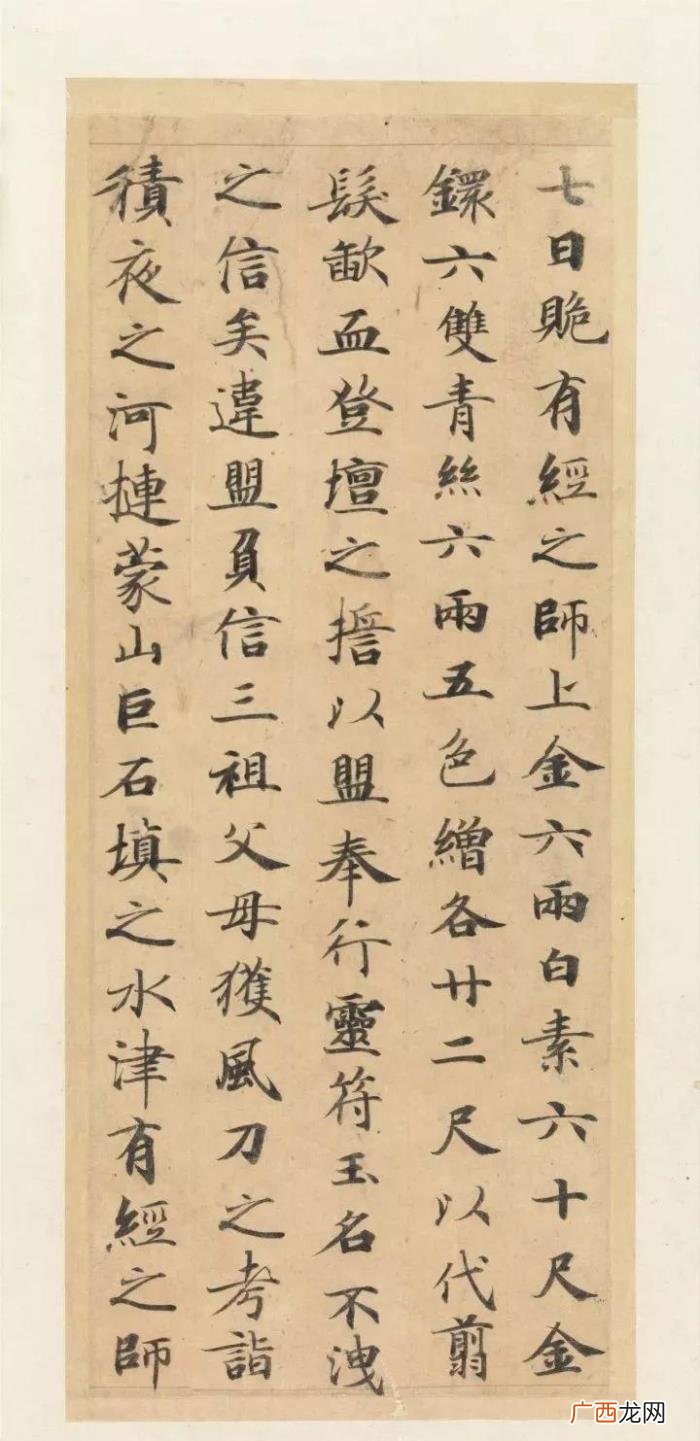 七日賘有經之師上金六兩白素六十尺金
鐶六雙青絲六兩五色繒各廿二尺以代翦
髮歃血登壇之擔以盟奉行靈符玉名不洩
之信矣違盟負信三祖父母獲風刀之考詣
積夜之河摙蒙山巨石填之水津有經之師
广西龙网